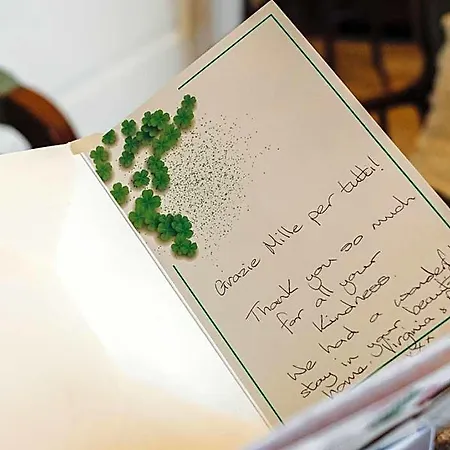 Grazie Mille per tutti!
Thank you so much
for all your
Kindness.
We had a wonderful
stay in your beauti
home. Virginia &